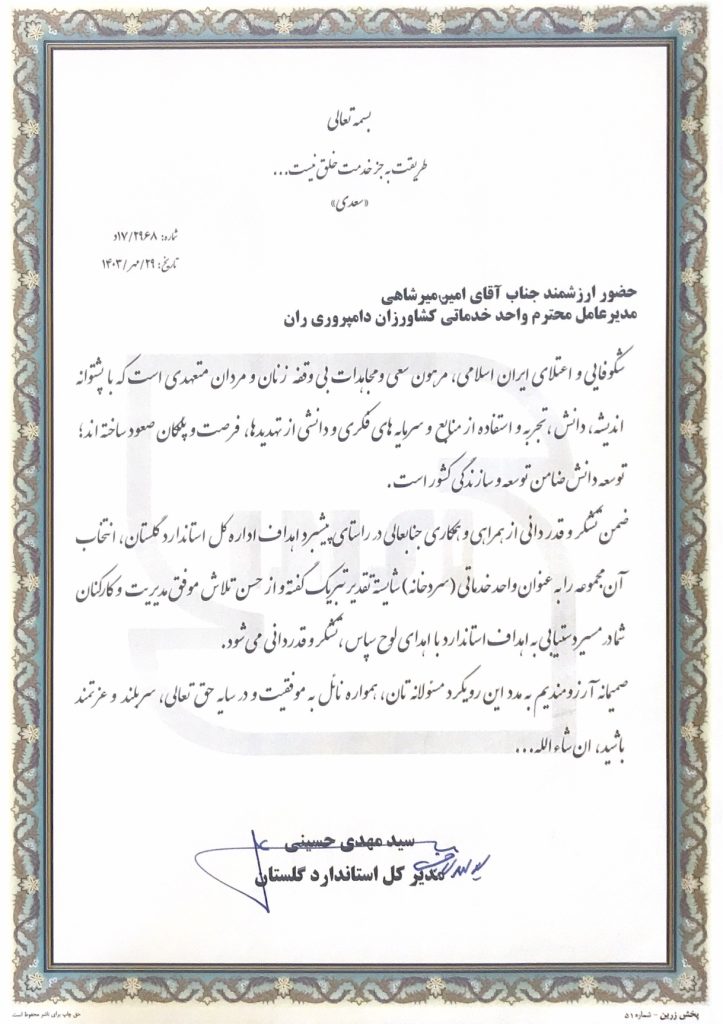 بسمه تعالی
طریقت به جز خدمت خلق نیست...
«سعدی»
شماره: ۱۷/۲۹۶۸د
تاریخ: ۲۹/مهر/۱۴۰۳
حضور ارزشمند جناب آقای امین‌میرشاهی
مدیرعامل محترم واحد خدماتی کشاورزان دامپروری ران
شکوفایی و اعتلای ایران اسلامی، مرهون سعی و مجاهدات بی وقفه زنان و مردان متعهدی است که با پشتوانه
اندیشه، دانش، تجربه و استفاده از منابع و سرمایه های فکری و دانشی از تهدیدها، فرصت و پلکان صعود ساخته اند؛
توسعه دانش ضامن توسعه و سازندگی کشور است.
ضمن تشکر و قدردانی از همراهی و همکاری جنابعالی در راستای پیشبرد اهداف اداره کل استاندارد گلستان، انتخاب
آن مجموعه را به عنوان واحد خدماتی (سردخانه) شایسته تقدیر تبریک گفته و از حسن تلاش موفق مدیریت و کارکنان
شما در مسیر دستیابی به اهداف استاندارد با اهدای لوح سپاس، تشکر و قدردانی می شود.
صمیمانه آرزومندیم به مدد این رویکرد مسئولانه تان، همواره نائل به موفقیت و در سایه حق تعالی، سربلند و عزتمند
باشید، ان شاء الله...
سید مهدی حسینی
مدیر کل استاندارد گلستان
پخش زرین - شماره ۵۱
حق چاپ برای ناشر محفوظ است